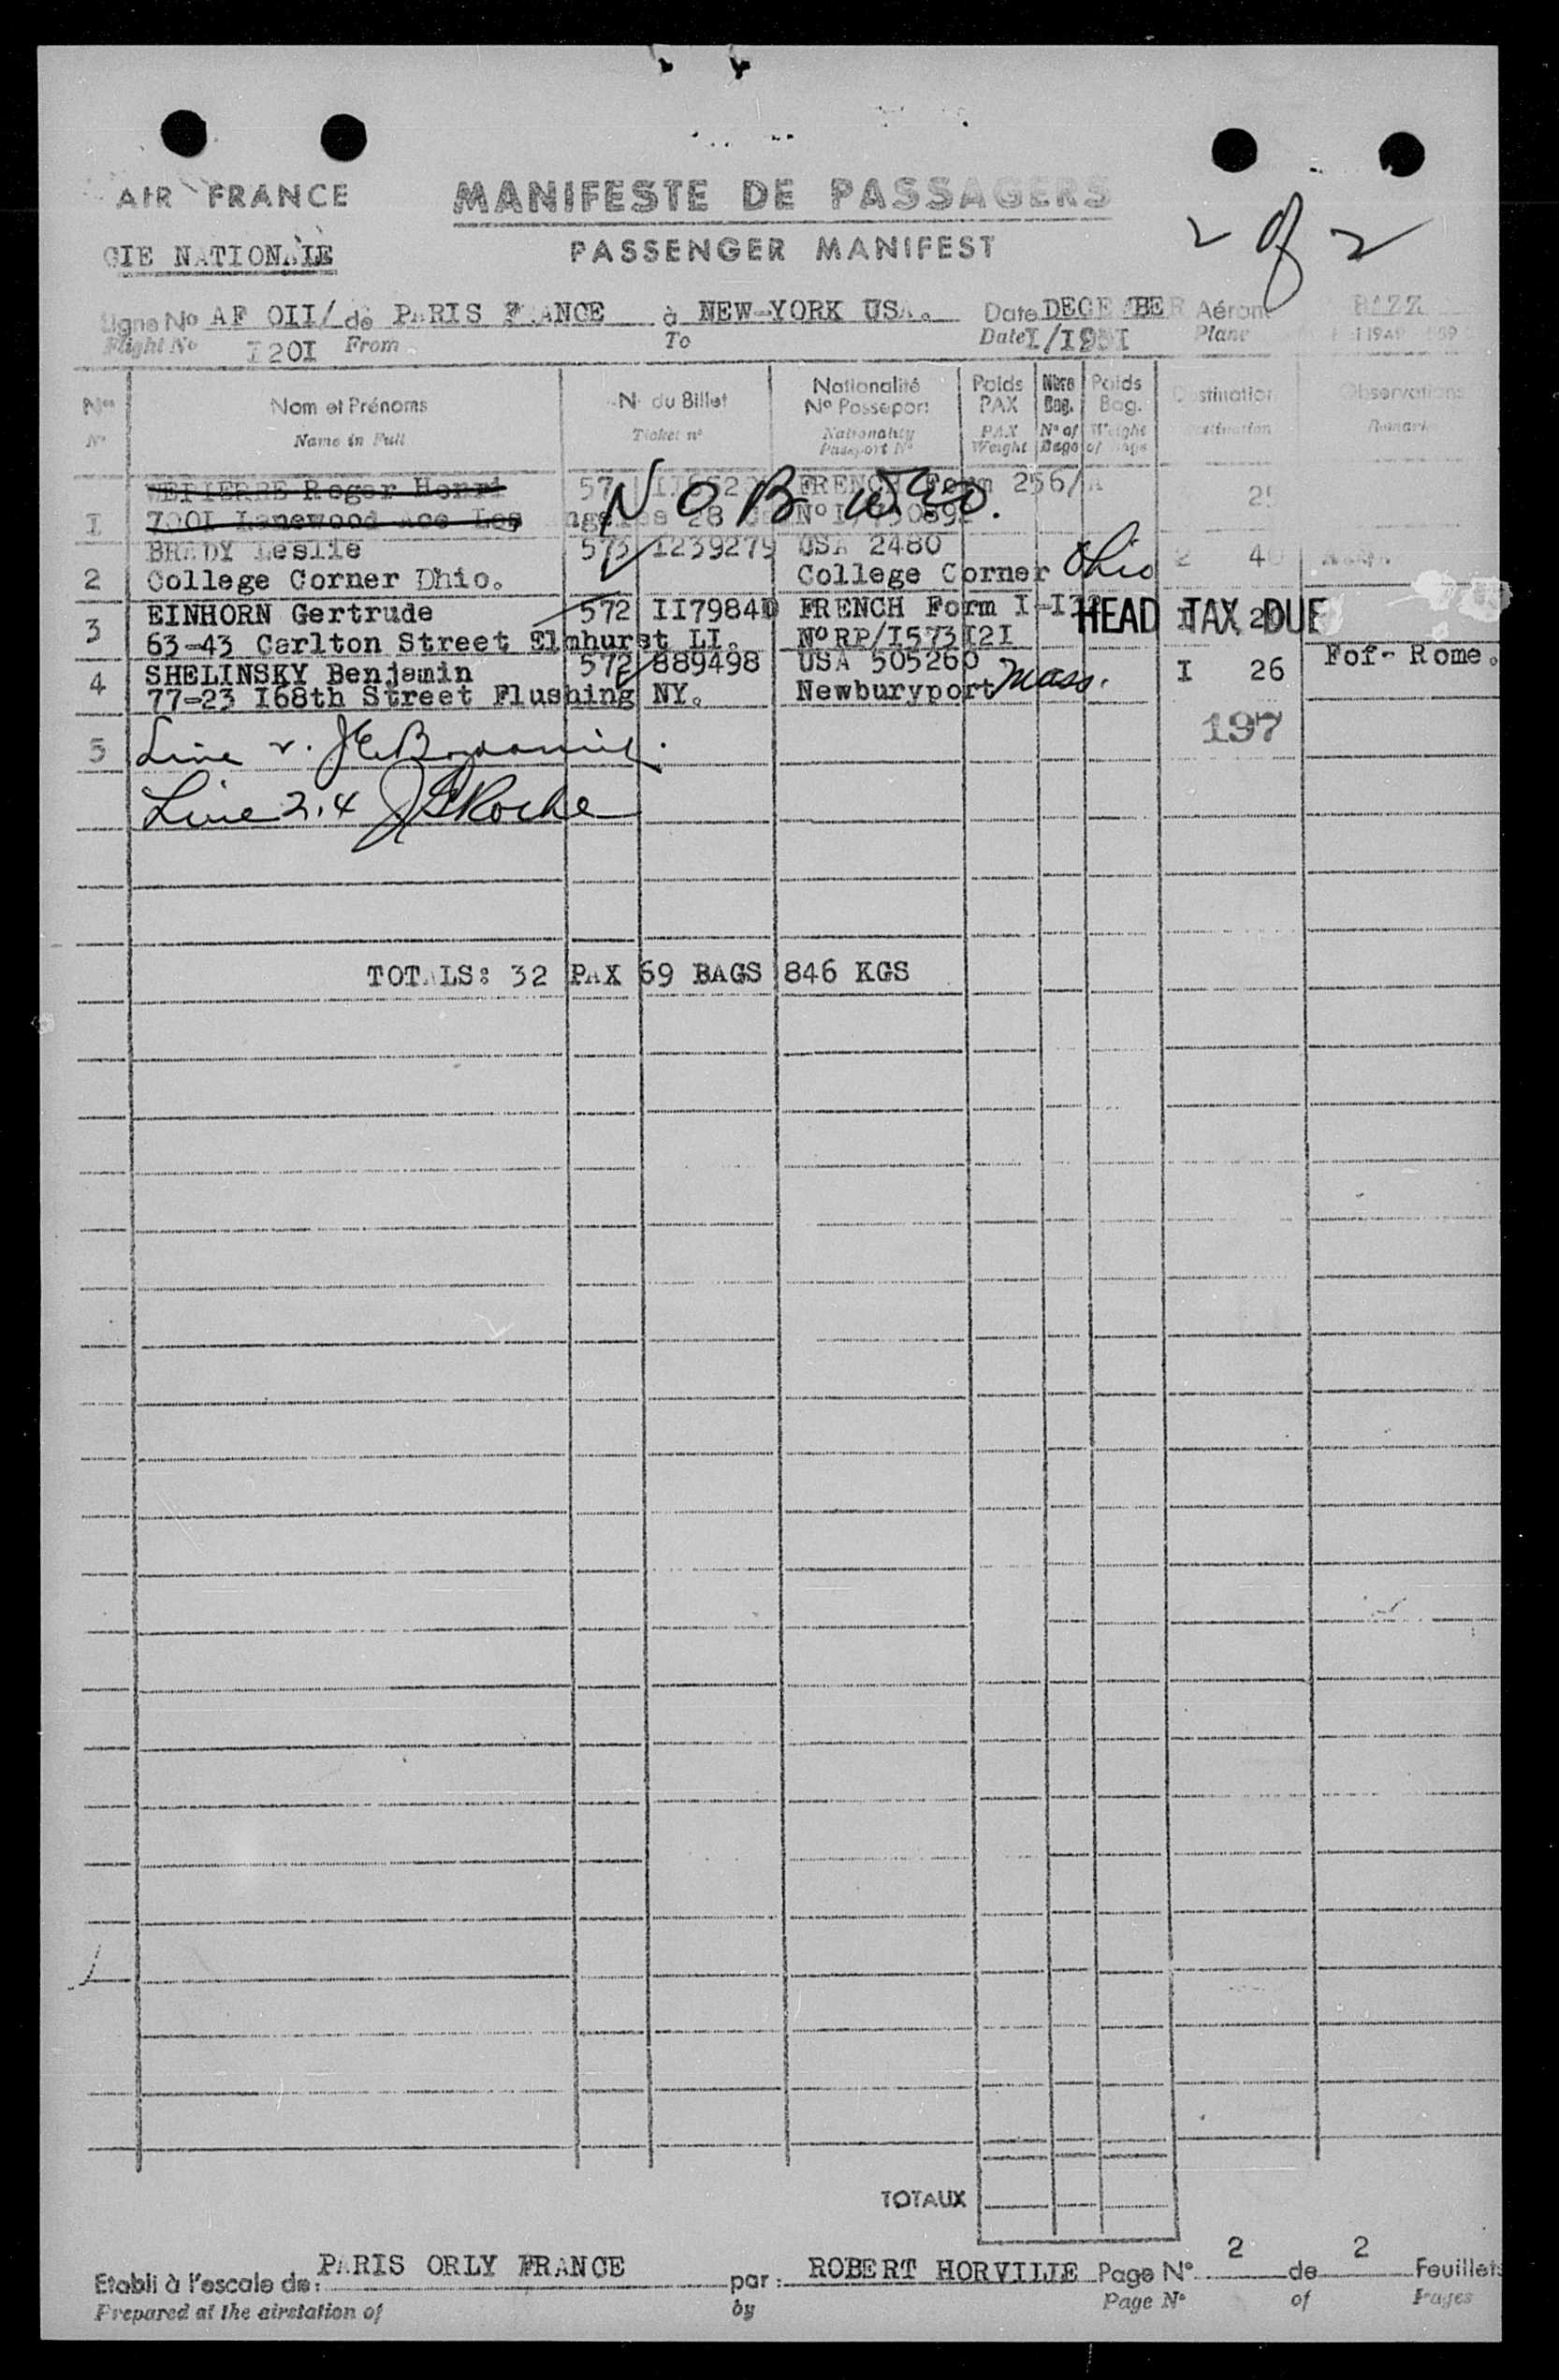 AIR FRANCE
MANIFESTE DE PASSAGERS
CIE NATIONALE
PASSENGER MANIFEST
2 of 2
Ligne No AF OII/ de PARIS FRANCE à NEW-YORK USA. Date DECEMBER Aéron
Flight No I20I From To Date I/I95I Plane
Nos Nom et Prénoms N° du Billet Nationalité Poids Nbre Poids Destination Observations
N° Name in Full Ticket n° No Passeport PAX Bag. Bag. Destination Remark
Nationality PAX N° of Weight
Passport N° Weight Bags of Bags
Roger Henri 57 FRENCH Form 256/A
I 700I Lanewood Ace Los 28 25
N O B
BRADY Leslie 573 I239279 USA 2480 2 40
2 College Corner Dhio. College Corner Ohio
EINHORN Gertrude 572 II79840 FRENCH Form I-I HEAD TAX DUE
3 63-43 Carlton Street Elmhurst LI. No RP/I573I2I
SHELINSKY Benjamin 572 889498 USA 505260 I 26 Fof- Rome.
4 77-23 I68th Street Flushing NY. Newburyport Mass.
197
5 Line 2.
Line 2.4 Roche
TOTALS: 32 PAX 69 BAGS 846 KGS
TOTAUX
Etabli à l'escale de: PARIS ORLY FRANCE par: ROBERT HORVILIE Page N° 2 de 2 Feuillets
Prepared at the airstation of by Page N° of Pages